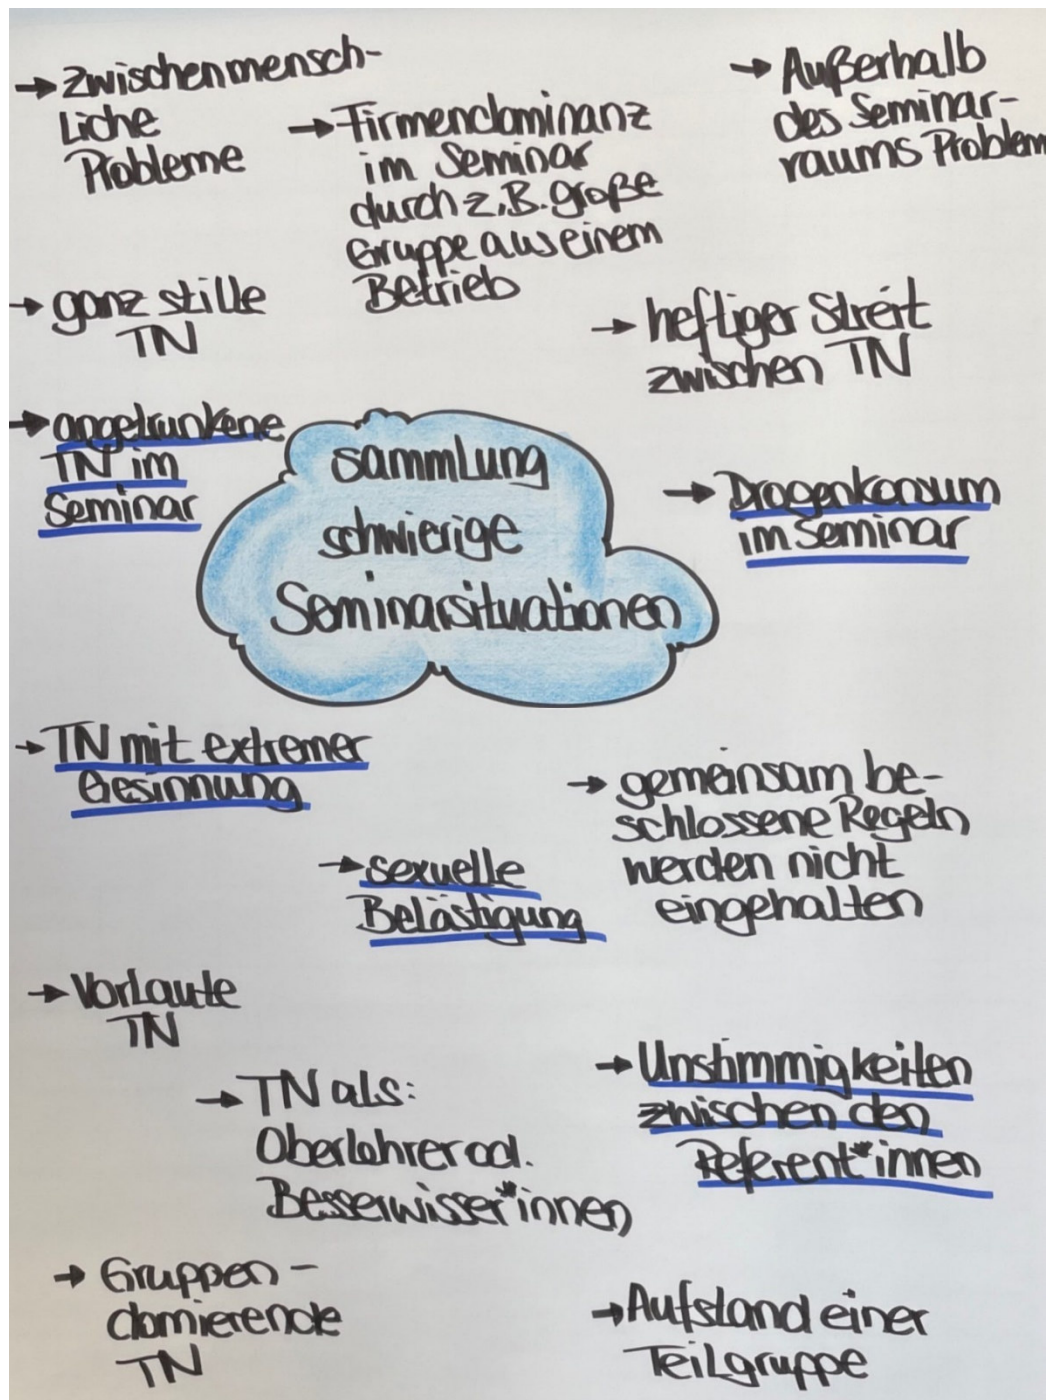 → Zwischenmensch-
liche
Probleme
→ Firmendominanz
im Seminar
durch z.B. große
Gruppe aus einem
Betrieb
→ Außerhalb
des Seminar-
raums Problem
→ ganz stille
TN
→ heftiger Streit
zwischen TN
→ angetrunkene
TN im
Seminar
Sammlung
schwierige
Seminarsituationen
→ Drogenkonsum
im Seminar
→ TN mit extremer
Gesinnung
→ gemeinsam be-
schlossene Regeln
werden nicht
eingehalten
→ sexuelle
Belästigung
→ Vorlaute
TN
→ TN als:
Oberlehrer od.
Besserwisser*innen
→ Unstimmigkeiten
zwischen den
Referent*innen
→ Gruppen-
domierende
TN
→ Aufstand einer
Teilgruppe